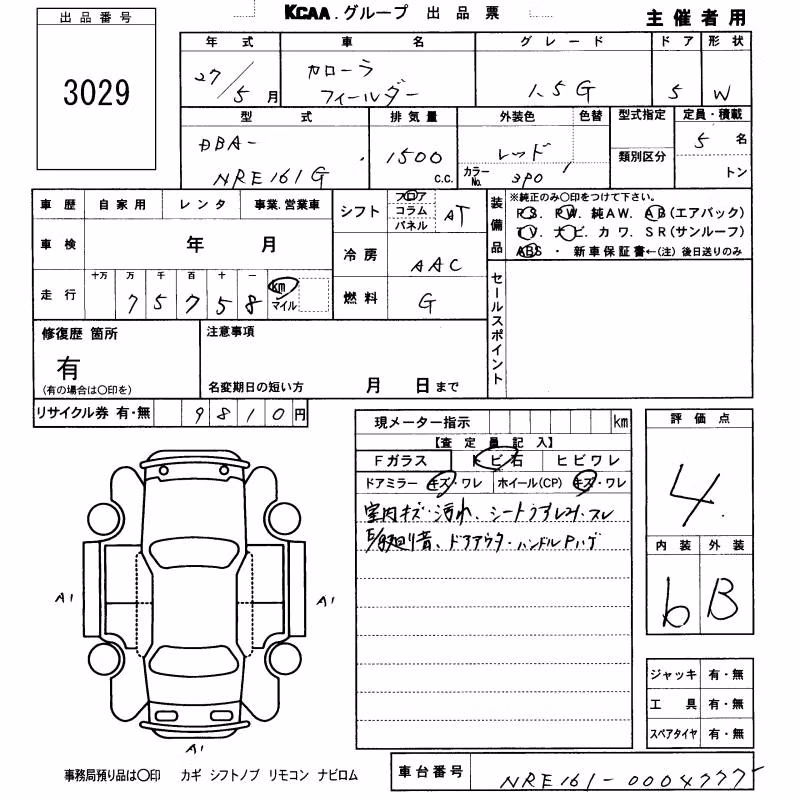 出品番号
3029
KCAA.グループ 出品票
主催者用
年式 車名 グレード ドア 形状
27/5月 カローラ フィールダー 1.5G 5 W
型式 排気量 外装色 色替 型式指定 定員・積載
類別区分
DBA-
NRE161G 1500 c.c. レッド カラーNo. 3P0 5名 トン
車歴 自家用 レンタ 事業.営業車
シフト フロア コラム パネル AT
装備品
※純正のみ〇印をつけて下さい。
P.S. P.W. 純AW. AB(エアバック)
TV. ナビ. カワ. SR(サンルーフ)
ABS ・ 新車保証書←(注) 後日送りのみ
車検 年 月
冷房 AAC
走行 十万 万 千 百 十 一
75758 km マイル
燃料 G
セールスポイント
修復歴 箇所
有
(有の場合は〇印を)
注意事項
名変期日の短い方 月 日まで
リサイクル券 有・無 9810円
現メーター指示 km
【査定員記入】
Fガラス トビ石 ヒビワレ
ドアミラー キズ・ワレ ホイール(CP) キズ・ワレ
室内キズ・汚れ、シートうすレみ・スレ
ドアアウタ・ハンドルPハゲ
評価点
4.
内装 外装
b B
A1
A1
A1
ジャッキ 有・無
工具 有・無
スペアタイヤ 有・無
事務局預り品は〇印 カギ シフトノブ リモコン ナビロム
車台番号 NRE161-0004777